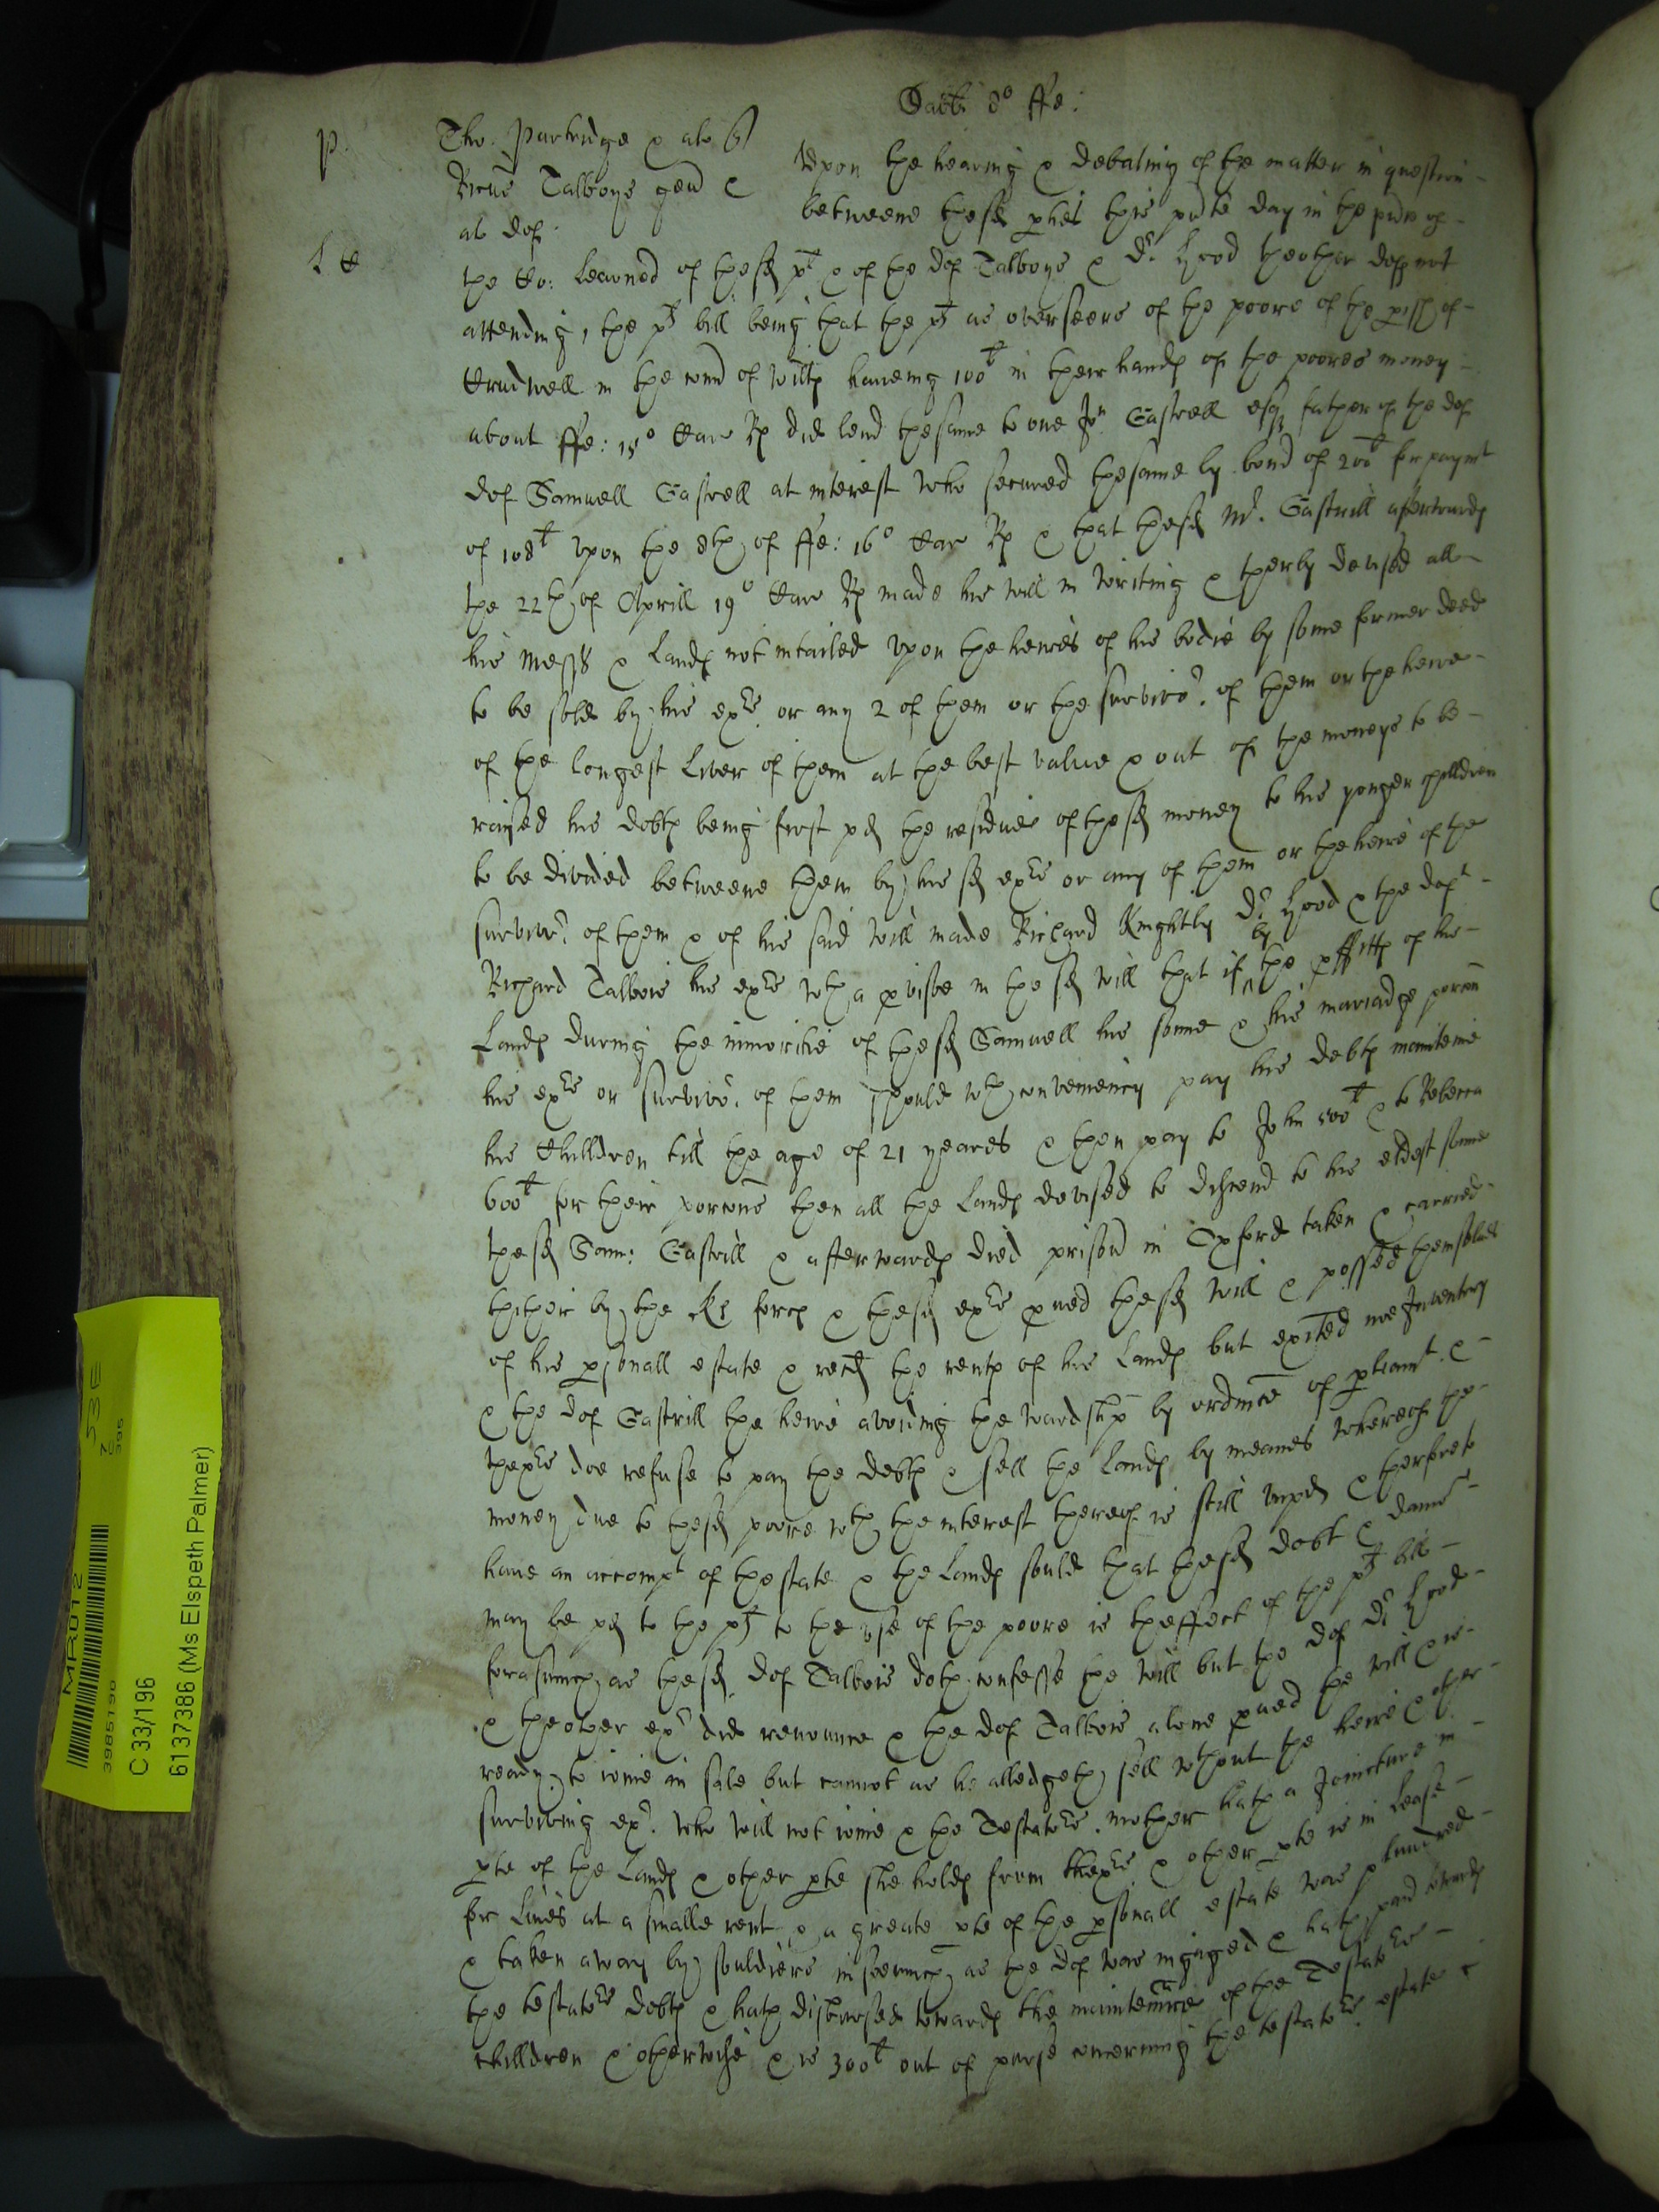 Sabti 8º ffe:
P. Tho. Partridge & al pl
Ricus Talboys gen &
al def.
L H
Upon the hearing & debating of the matter in question
betweene the sd pties this pnte day in the pnce of
the Co: Learned of the sd pt & of the def Talboys & Dr. Hood thother def not
attending, the pt bill being that the pt as overseers of the poore of the pish of
Crudwell in the com of Wilts haveing 100l in their hands of the poores money
about ffe: 15º Car R did lend the same to one Jn Gastrell esq father of the def
def Samuell Gastrell at interest who secured the same by bond of 200l for paymt
of 108l upon the 8th of ffe: 16º Car R & that the sd Mr. Gastrill afterwards
the 22th of Aprill 19º Car R made his will in writing & therby devised all
his mess & Lands not intailed upon the heires of his bodie by some former deed
to be sold by his exrs or any 2 of them or the survivor of them or the heire
of the longest Liver of them at the best value & out of the moneys to be
raysed his debts being first pd the residue of the sd money to his yonger chilldren
to be divided betweene them by his sd exrs or any of them or the heire of the
survivor of them & of his said will made Richard Knightly Dr Hood & the deft
Richard Talbois his exrs wth a pviso in the sd will that if by the pffitts of his
Lands during the minoritie of the sd Samuell his sonne & his mariadge porcon
his exrs or survivor of them should wth conveniency pay his debts mainteine
his Chilldren till the age of 21 yeares & then pay to John 500l & to Rebecca
600l for their porcons then all the Lands devised to discend to his eldest sonne
the sd Sam: Gastrill & afterwards died prisonr in Oxford taken & carried
thither by the Ks forces & the sd exrs pved the sd will & possed themselves
of his psonall estate & recd the rents of his Lands but exited noe Inventory
& the def Gastrill the heire avoiding the wardshp by ordince of pliamt &
thexrs doe refuse to pay the debts & sell the Lands by meanes whereof the
money due to the sd poore wth the interest thereof is still unpd & therfore to
have an accompt of thestate & the Lands sould that the sd debt & dams
may be pd to the pt to the use of the poore is theffect of the pt bill
forasmuch as the sd def Talbois doth confesse the will but the def Dr Hood
& thother exr did renounce & the def Talbois alone pved the will & is
ready to ioine in sale but cannot as he alledgeth sell wthout the heire & other
surviving exr. who will not ioine & the Testators mother hath a Joincture in
pte of the Lands & other pte she holds from thexrs & other pte is in lease
for Lives at a smalle rent & a greate pte of the psonall estate was plundred
& taken away by souldiers insoemuch as the def was ingaged & hath paid towards
the testators debts & hath disbursed towards the maintennce of the Testators
chilldren & otherwise & is 300l out of purse concerning the testators estate &
MR012
3985198
C 33/196
6137386 (Ms Elspeth Palmer)
53E
7
395